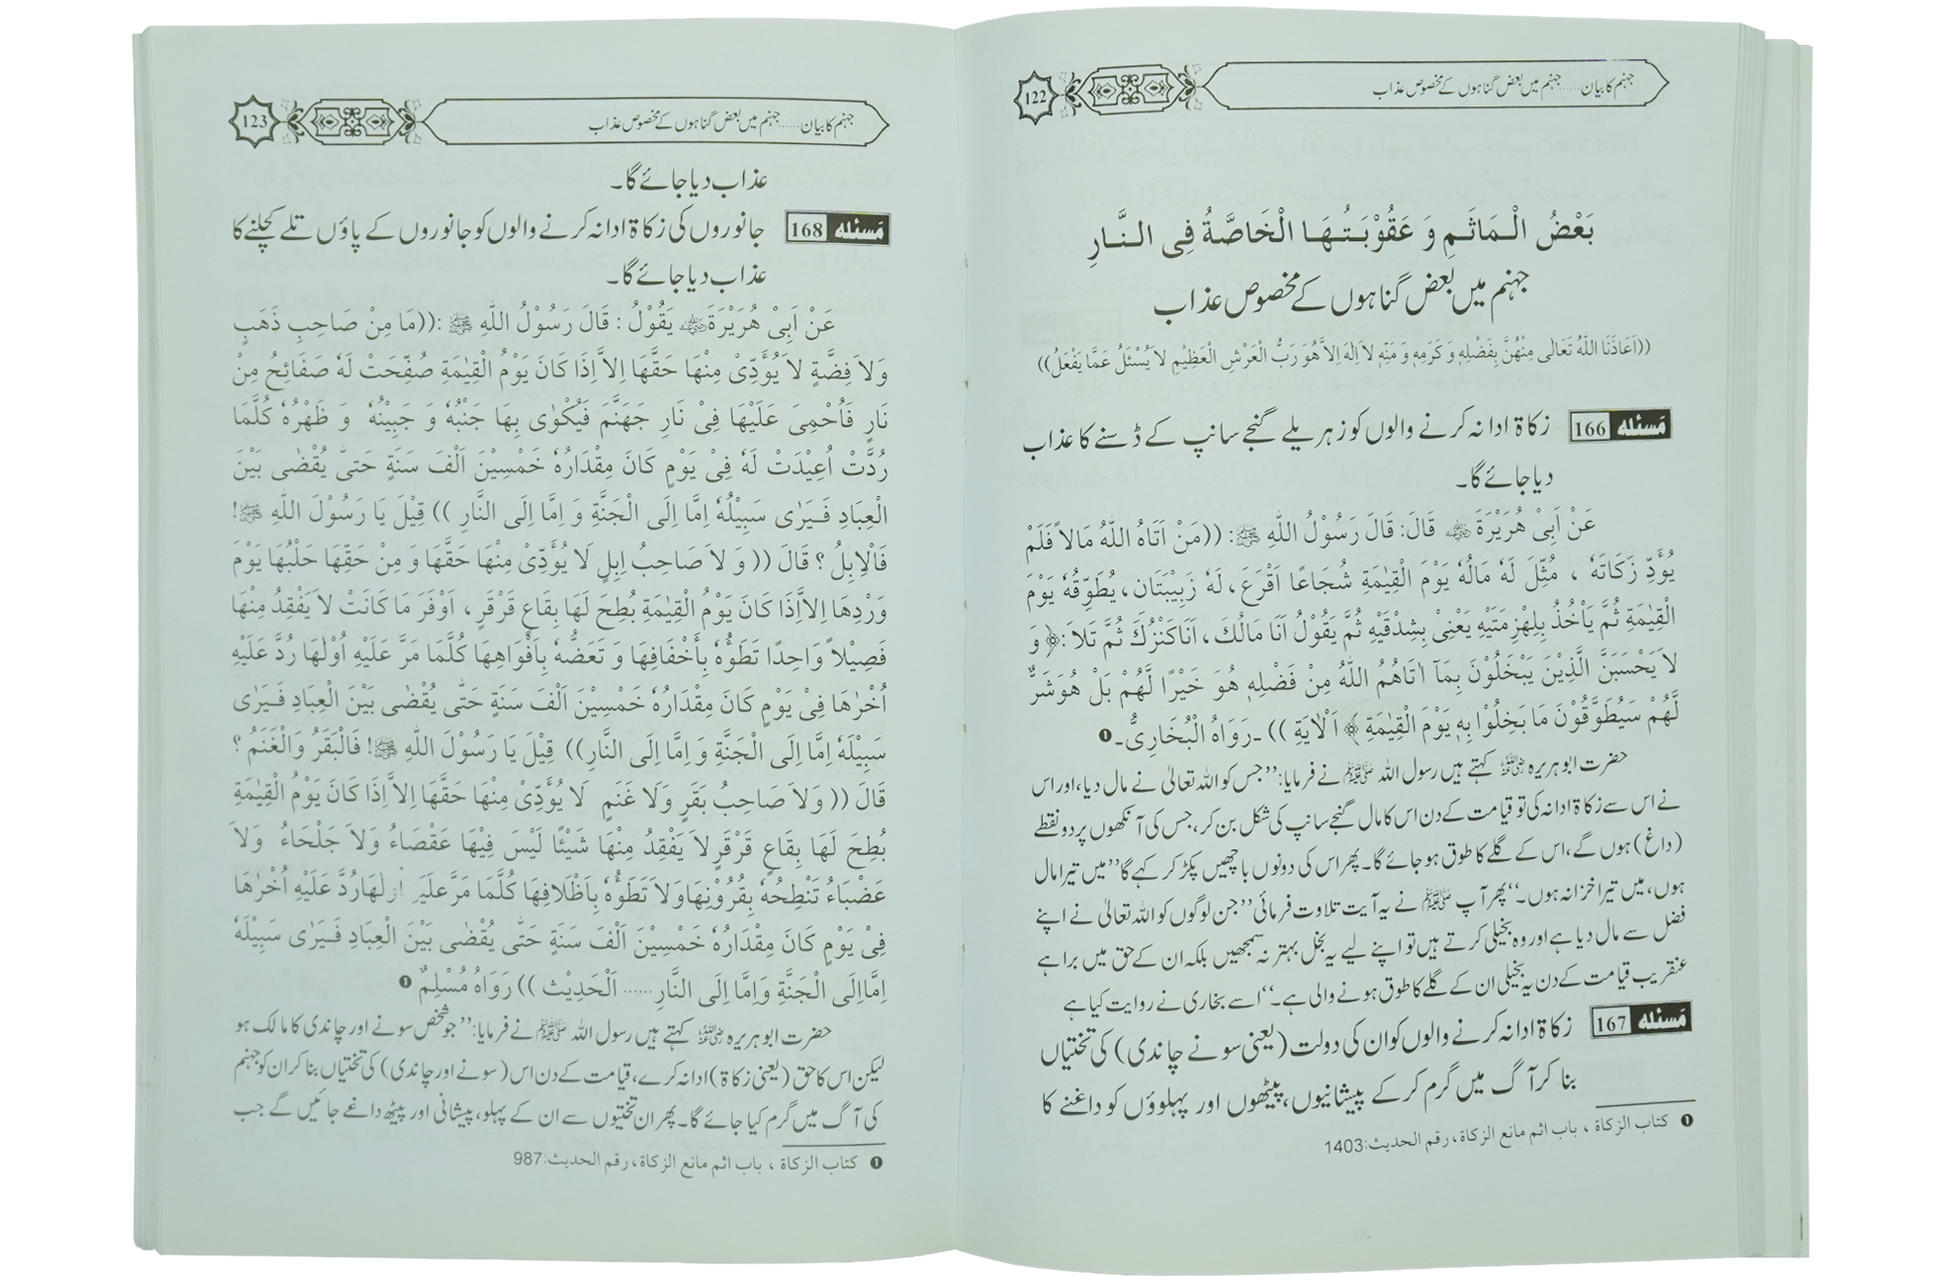 جہنم کا بیان......جہنم میں بعض گناہوں کے مخصوص عذاب
122
بَعْضُ الْمَاٰثَمِ وَ عَقُوْبَتُهَا الْخَاصَّةُ فِی النَّارِ
جہنم میں بعض گناہوں کے مخصوص عذاب
((اَعَاذَنَا اللّٰهُ تَعَالٰی مِنْهُنَّ بِفَضْلِهٖ وَ کَرَمِهٖ وَ مَنِّهٖ لاَ اِلٰهَ اِلاَّ هُوَ رَبُّ الْعَرْشِ الْعَظِیْمِ لاَ یُسْئَلُ عَمَّا یَفْعَلُ))
مَسئله 166 زکاۃ ادا نہ کرنے والوں کو زہریلے گنجے سانپ کے ڈسنے کا عذاب
دیا جائے گا۔
عَنْ اَبِیْ هُرَیْرَةَ رضی اللہ عنہ قَالَ: قَالَ رَسُوْلُ اللّٰهِ ﷺ: ((مَنْ اٰتَاهُ اللّٰهُ مَالاً فَلَمْ
یُؤَدِّ زَکَاتَهٗ ، مُثِّلَ لَهٗ مَالُهٗ یَوْمَ الْقِیٰمَةِ شُجَاعًا اَقْرَعَ، لَهٗ زَبِیْبَتَانِ، یُطَوِّقُهٗ یَوْمَ
الْقِیٰمَةِ ثُمَّ یَاْخُذُ بِلِهْزِمَتَیْهِ یَعْنِیْ بِشِدْقَیْهِ ثُمَّ یَقُوْلُ اَنَا مَالُكَ، اَنَا کَنْزُكَ ثُمَّ تَلاَ: ﴿وَ
لاَ یَحْسَبَنَّ الَّذِیْنَ یَبْخَلُوْنَ بِمَآ اٰتَاهُمُ اللّٰهُ مِنْ فَضْلِهٖ هُوَ خَیْرًا لَّهُمْ بَلْ هُوَ شَرٌّ
لَّهُمْ سَیُطَوَّقُوْنَ مَا بَخِلُوْا بِهٖ یَوْمَ الْقِیٰمَةِ﴾ اَلْاٰیَةِ )) ۔رَوَاهُ الْبُخَارِیُّ۔❶
حضرت ابو ہریرہ رضی اللہ عنہ کہتے ہیں رسول اللہ ﷺ نے فرمایا: ’’جس کو اللہ تعالیٰ نے مال دیا، اور اس
نے اس سے زکاۃ ادا نہ کی تو قیامت کے دن اس کا مال گنجے سانپ کی شکل بن کر، جس کی آنکھوں پر دو نقطے
(داغ) ہوں گے، اس کے گلے کا طوق ہو جائے گا۔ پھر اس کی دونوں باچھیں پکڑ کر کہے گا ’’میں تیرا مال
ہوں، میں تیرا خزانہ ہوں۔‘‘ پھر آپ ﷺ نے یہ آیت تلاوت فرمائی ’’جن لوگوں کو اللہ تعالیٰ نے اپنے
فضل سے مال دیا ہے اور وہ بخیلی کرتے ہیں تو اپنے لیے یہ بخل بہتر نہ سمجھیں بلکہ ان کے حق میں برا ہے
عنقریب قیامت کے دن یہ بخیلی ان کے گلے کا طوق ہونے والی ہے۔‘‘ اسے بخاری نے روایت کیا ہے
مَسئله 167 زکاۃ ادا نہ کرنے والوں کو ان کی دولت (یعنی سونے چاندی) کی تختیاں
بنا کر آگ میں گرم کر کے پیشانیوں، پیٹھوں اور پہلوؤں کو داغنے کا
❶ کتاب الزکاة ، باب اثم مانع الزکاة، رقم الحدیث:1403
جہنم کا بیان......جہنم میں بعض گناہوں کے مخصوص عذاب
123
عذاب دیا جائے گا۔
مَسئله 168 جانوروں کی زکاۃ ادا نہ کرنے والوں کو جانوروں کے پاؤں تلے کچلنے کا
عذاب دیا جائے گا۔
عَنْ اَبِیْ هُرَیْرَةَ رضی اللہ عنہ یَقُوْلُ: قَالَ رَسُوْلُ اللّٰهِ ﷺ :((مَا مِنْ صَاحِبِ ذَهَبٍ
وَلاَ فِضَّةٍ لاَ یُؤَدِّیْ مِنْهَا حَقَّهَا اِلاَّ اِذَا کَانَ یَوْمُ الْقِیٰمَةِ صُفِّحَتْ لَهٗ صَفَائِحُ مِنْ
نَارٍ فَاُحْمِیَ عَلَیْهَا فِیْ نَارِ جَهَنَّمَ فَیُکْوٰی بِهَا جَنْبُهٗ وَ جَبِیْنُهٗ وَ ظَهْرُهٗ کُلَّمَا
رُدَّتْ اُعِیْدَتْ لَهٗ فِیْ یَوْمٍ کَانَ مِقْدَارُهٗ خَمْسِیْنَ اَلْفَ سَنَةٍ حَتّٰی یُقْضٰی بَیْنَ
الْعِبَادِ فَیَرٰی سَبِیْلُهٗ اِمَّا اِلَی الْجَنَّةِ وَ اِمَّا اِلَی النَّارِ )) قِیْلَ یَا رَسُوْلَ اللّٰهِ ﷺ!
فَالْاِبِلُ ؟ قَالَ (( وَ لاَ صَاحِبُ اِبِلٍ لَا یُؤَدِّیْ مِنْهَا حَقَّهَا وَ مِنْ حَقِّهَا حَلْبُهَا یَوْمَ
وَرْدِهَا اِلاَّ اِذَا کَانَ یَوْمُ الْقِیٰمَةِ بُطِحَ لَهَا بِقَاعٍ قَرْقَرٍ ، اَوْفَرَ مَا کَانَتْ لاَ یَفْقِدُ مِنْهَا
فَصِیْلاً وَاحِدًا تَطَؤُهٗ بِأَخْفَافِهَا وَ تَعَضُّهٗ بِاَفْوَاهِهَا کُلَّمَا مَرَّ عَلَیْهِ اُوْلٰهَا رُدَّ عَلَیْهِ
اُخْرٰهَا فِیْ یَوْمٍ کَانَ مِقْدَارُهٗ خَمْسِیْنَ اَلْفَ سَنَةٍ حَتّٰی یُقْضٰی بَیْنَ الْعِبَادِ فَیَرٰی
سَبِیْلَهٗ اِمَّا اِلَی الْجَنَّةِ وَ اِمَّا اِلَی النَّارِ)) قِیْلَ یَا رَسُوْلَ اللّٰهِ ﷺ! فَالْبَقَرُ وَالْغَنَمُ ؟
قَالَ (( وَلاَ صَاحِبُ بَقَرٍ وَلَا غَنَمٍ لَا یُؤَدِّیْ مِنْهَا حَقَّهَا اِلاَّ اِذَا کَانَ یَوْمُ الْقِیٰمَةِ
بُطِحَ لَهَا بِقَاعٍ قَرْقَرٍ لاَ یَفْقِدُ مِنْهَا شَیْئًا لَیْسَ فِیْهَا عَقْصَاءُ وَلاَ جَلْحَاءُ وَلاَ
عَضْبَاءُ تَنْطِحُهٗ بِقُرُوْنِهَا وَلاَ تَطَؤُهٗ بِاَظْلَافِهَا کُلَّمَا مَرَّ عَلَیْهِ اُوْلٰهَا رُدَّ عَلَیْهِ اُخْرٰهَا
فِیْ یَوْمٍ کَانَ مِقْدَارُهٗ خَمْسِیْنَ اَلْفَ سَنَةٍ حَتّٰی یُقْضٰی بَیْنَ الْعِبَادِ فَیَرٰی سَبِیْلَهٗ
اِمَّا اِلَی الْجَنَّةِ وَاِمَّا اِلَی النَّارِ...... اَلْحَدِیْث )) رَوَاهُ مُسْلِمٌ ❶
حضرت ابو ہریرہ رضی اللہ عنہ کہتے ہیں رسول اللہ ﷺ نے فرمایا: ’’جو شخص سونے اور چاندی کا مالک ہو
لیکن اس کا حق (یعنی زکاۃ) ادا نہ کرے، قیامت کے دن اس (سونے اور چاندی) کی تختیاں بنا کر ان کو جہنم
کی آگ میں گرم کیا جائے گا۔ پھر ان تختیوں سے ان کے پہلو، پیشانی اور پیٹھ داغے جائیں گے جب
❶ کتاب الزکاة ، باب اثم مانع الزکاة، رقم الحدیث:987